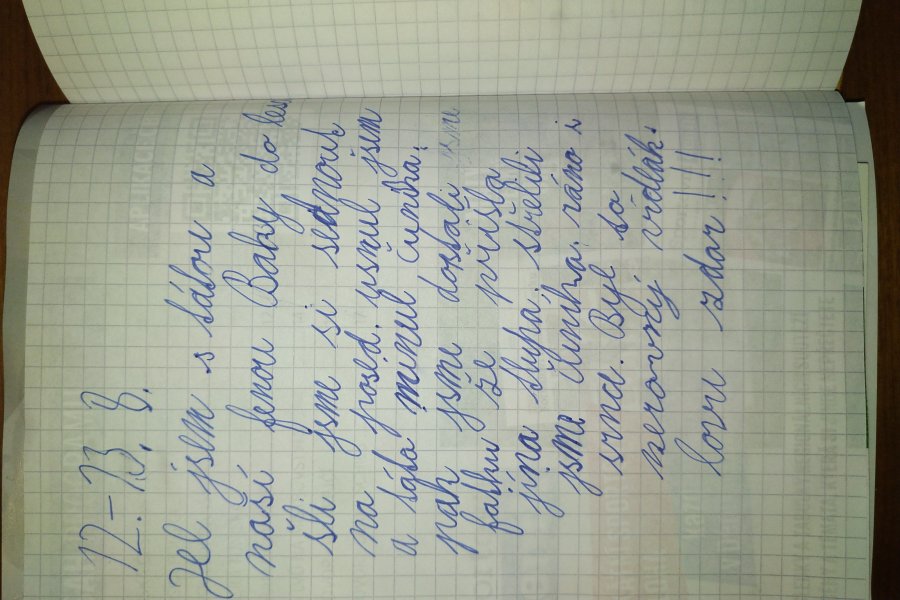 12.-13. 8.
Jel jsem s tátou a
naší fenou Baky do lesa,
šli jsme si sednout
na posed. usnul jsem
a táta minul čuníka,
pak jsme dostali sme
fatku že přišla
jína tlupa, střelili
jsme čuníka. ráno i
srnd. Byl to
nerovný vidlák.
lovu zdar!!!